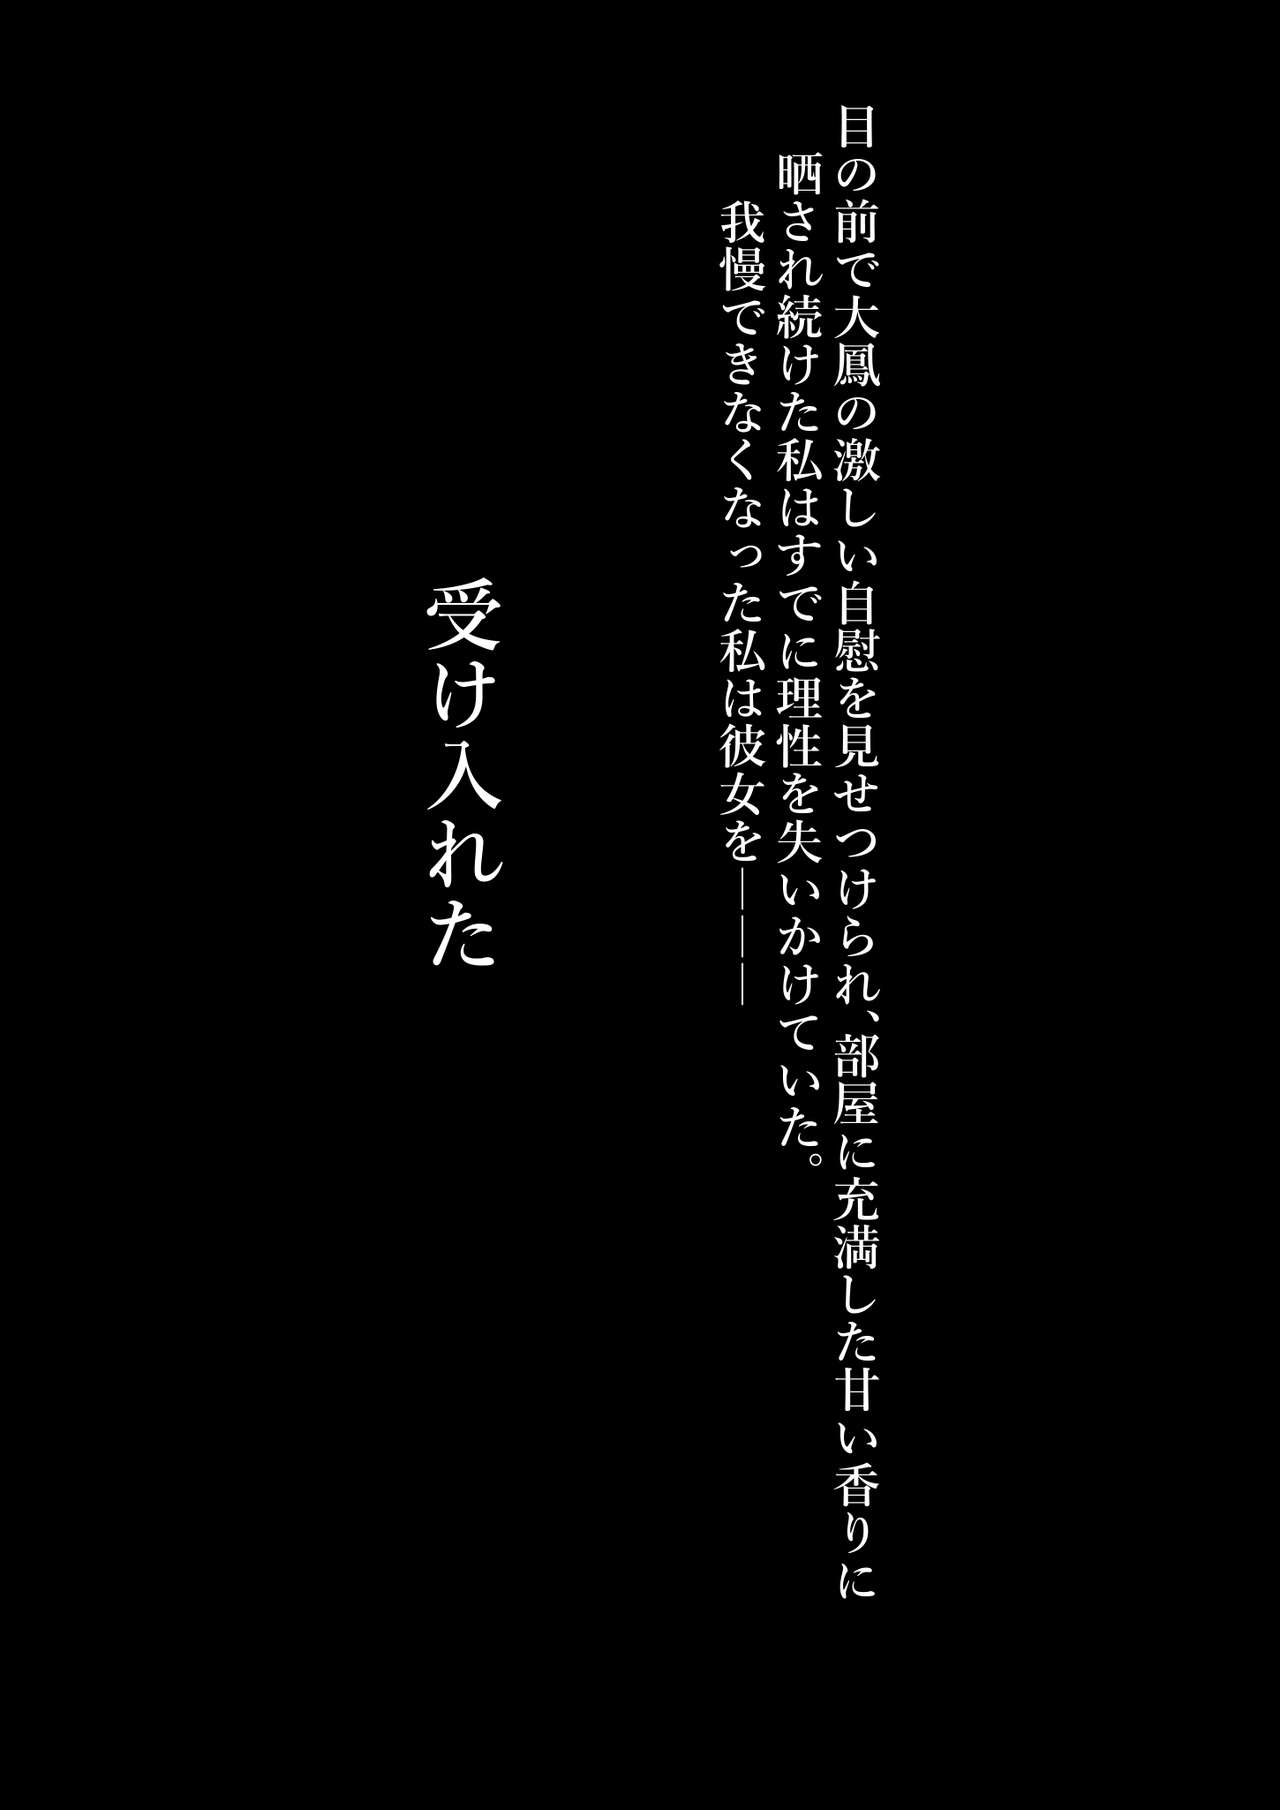 目の前で大鳳の激しい自慰を見せつけられ、部屋に充満した甘い香りに
晒され続けた私はすでに理性を失いかけていた。
我慢できなくなった私は彼女を―――
受け入れた